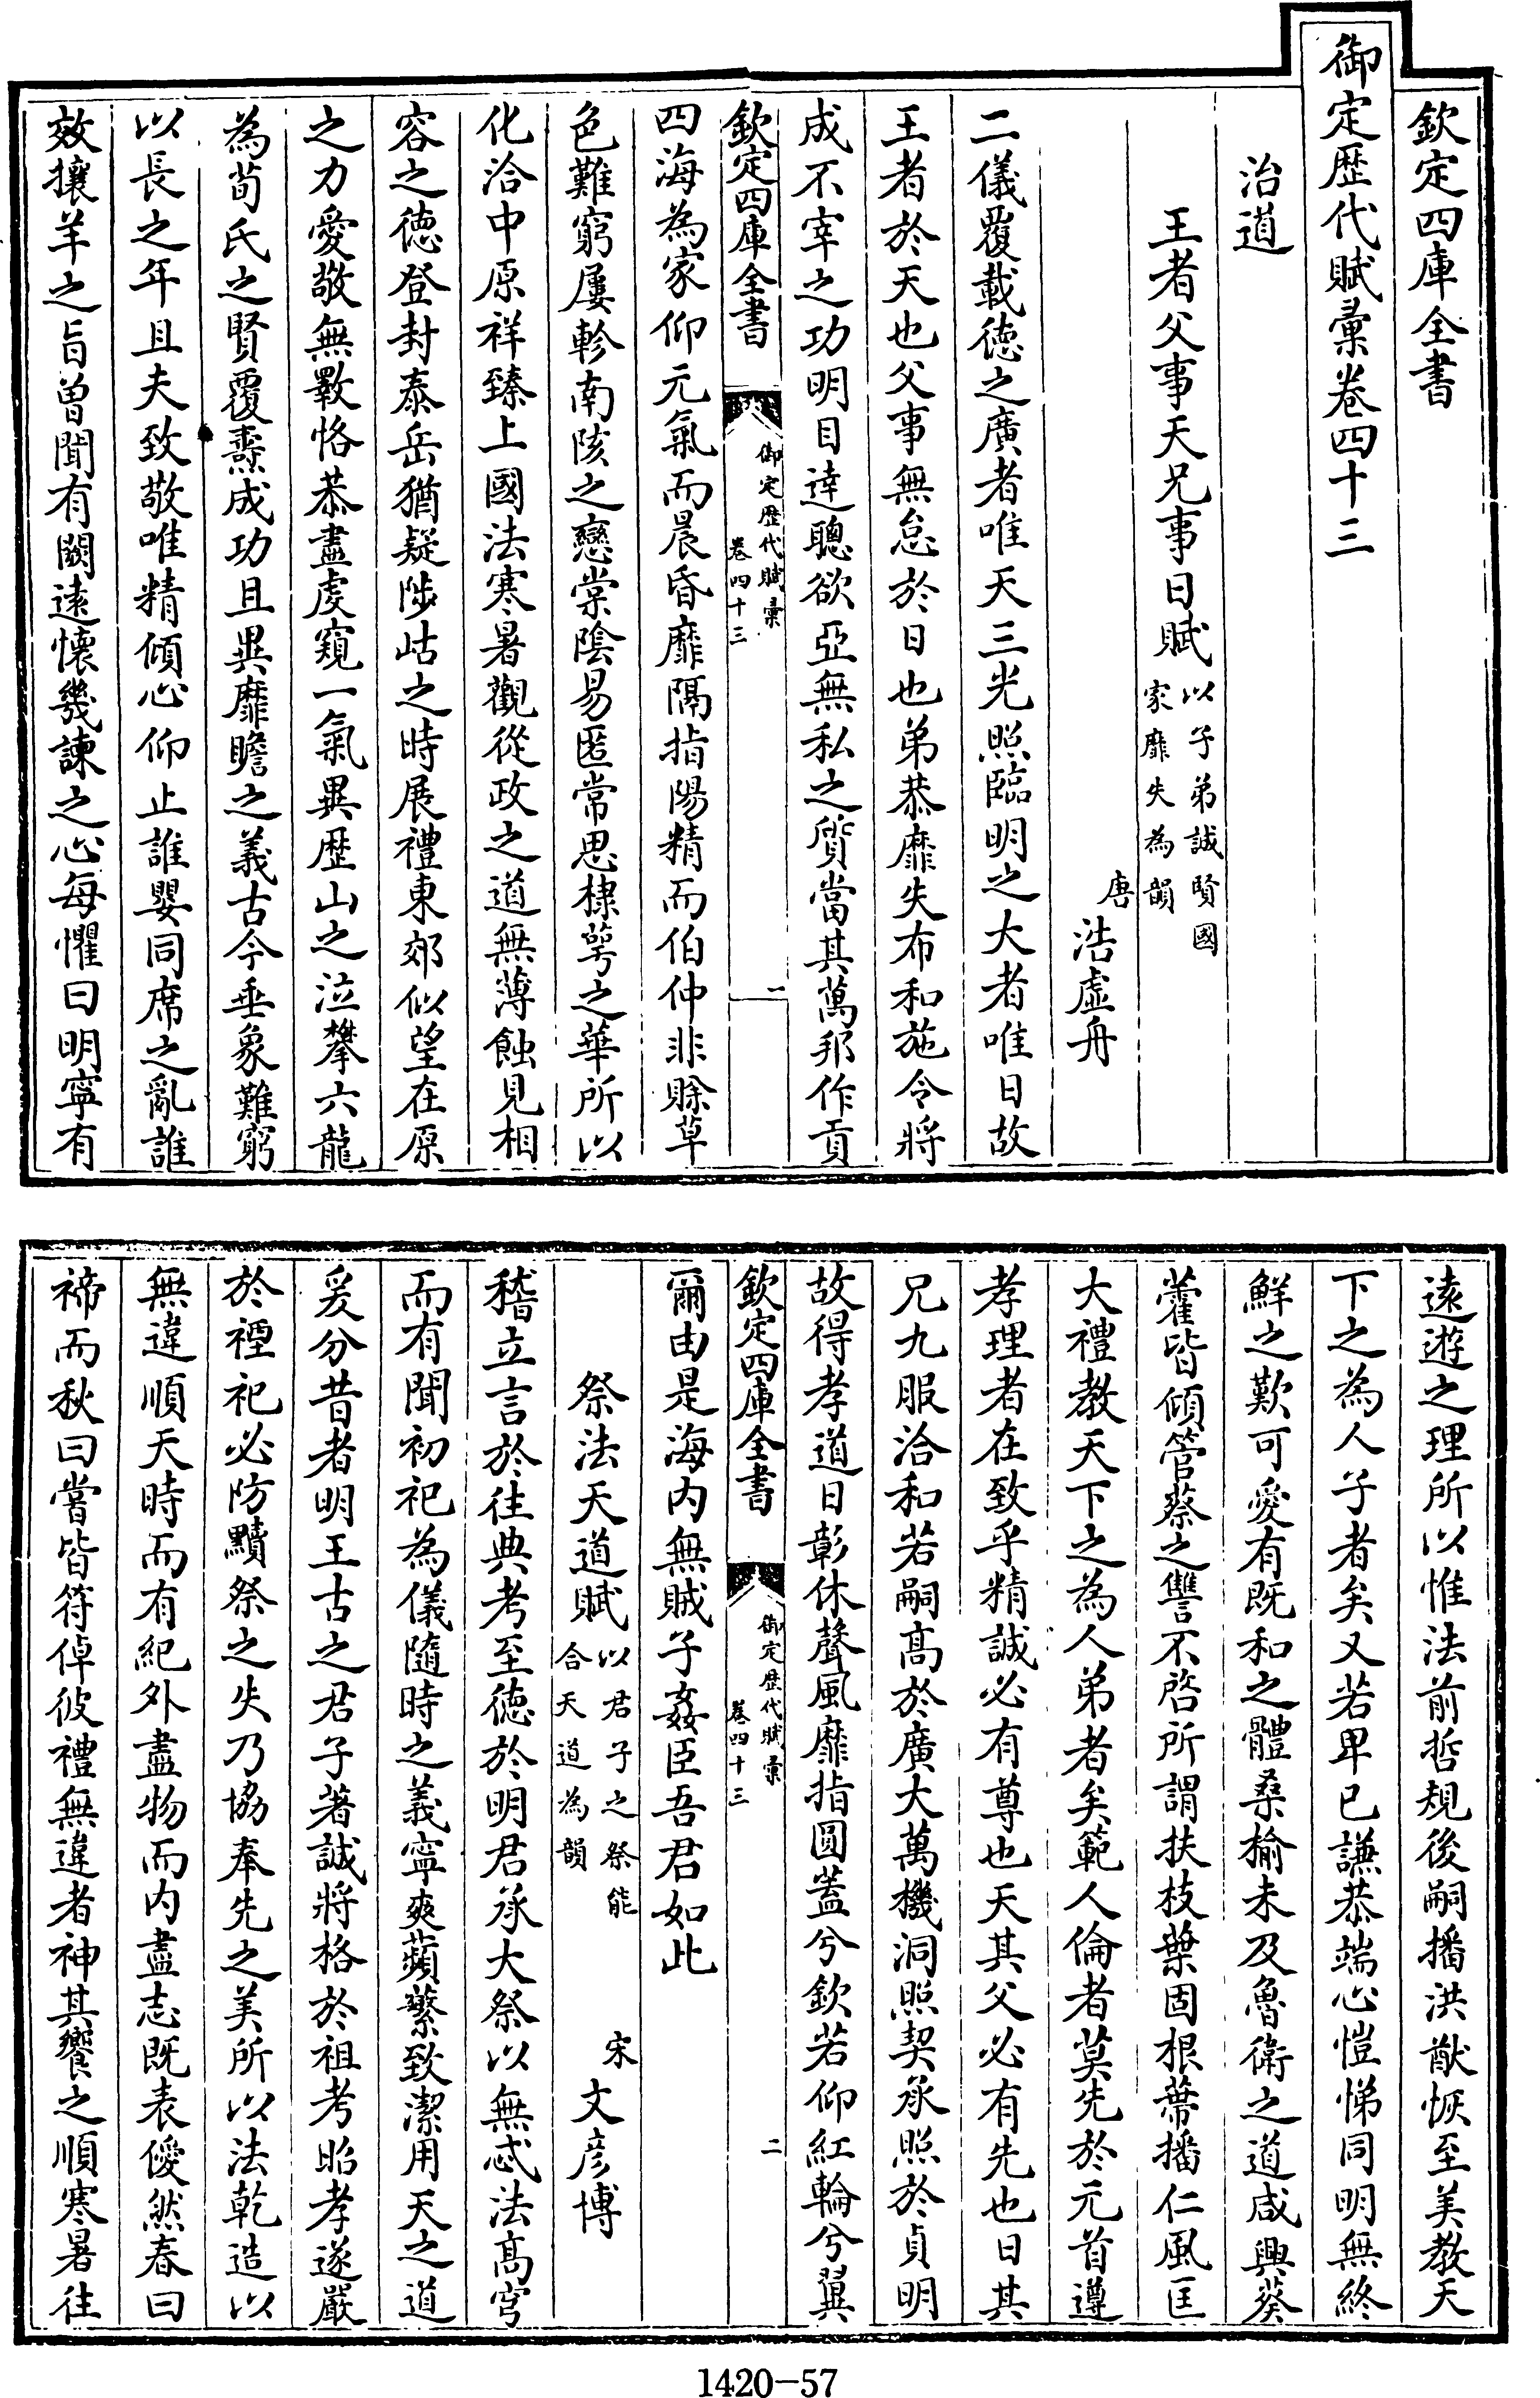 欽定四庫全書
御定歴代賦彙卷四十三
治道
王者父事天兄事日賦以子弟誠賢國家靡失為韻
唐浩虚舟
二儀覆載徳之廣者唯天三光照臨明之大者唯日故
王者於天也父事無怠於日也弟恭靡失布和施令將
成不宰之功明目達聰欲亞無私之質當其萬邦作貢
欽定四庫全書
御定歴代賦彙
卷四十三
一
四海為家仰元氣而晨昏靡隔指陽精而伯仲非賖草
色難窮屢軫南陔之戀棠陰易匿常思棣萼之華所以
化洽中原祥臻上國法寒暑觀從政之道無薄蝕見相
容之徳登封泰岳猶疑陟岵之時展禮東郊似望在原
之力愛敬無斁恪恭盡虔窺一氣異歴山之泣攀六龍
為荀氏之賢覆燾成功且異靡瞻之義古今垂象難窮
以長之年且夫致敬唯精傾心仰止誰嬰同席之亂誰
效攘羊之旨曽聞有闕逺懐幾諫之心每懼曰明寧有
逺遊之理所以惟法前哲規後嗣播洪猷恢至美教天
下之為人子者矣又若卑已謙恭端心愷悌同明無終
鮮之歎可愛有既和之體桑榆未及魯衛之道咸興葵
藿皆傾管蔡之讐不啓所謂扶枝葉固根蔕播仁風匡
大禮教天下之為人弟者矣範人倫者莫先於元首遵
孝理者在致乎精誠必有尊也天其父必有先也日其
兄九服洽和若嗣髙於廣大萬機洞照契承照於貞明
故得孝道日彰休聲風靡指圓蓋兮欽若仰紅輪兮翼
欽定四庫全書
御定歴代賦彙
卷四十三
二
爾由是海内無賊子姦臣吾君如此
祭法天道賦以君子之祭能合天道為韻
宋文彦博
稽立言於徃典考至徳於明君承大祭以無忒法髙穹
而有聞初祀為儀隨時之義寧爽蘋蘩致潔用天之道
爰分昔者明王古之君子著誠將格於祖考昭孝遂嚴
於禋祀必防黷祭之失乃協奉先之美所以法乾造以
無違順天時而有紀外盡物而内盡志既表僾然春曰
禘而秋曰嘗皆符倬彼禮無違者神其饗之順寒暑往
1420-57